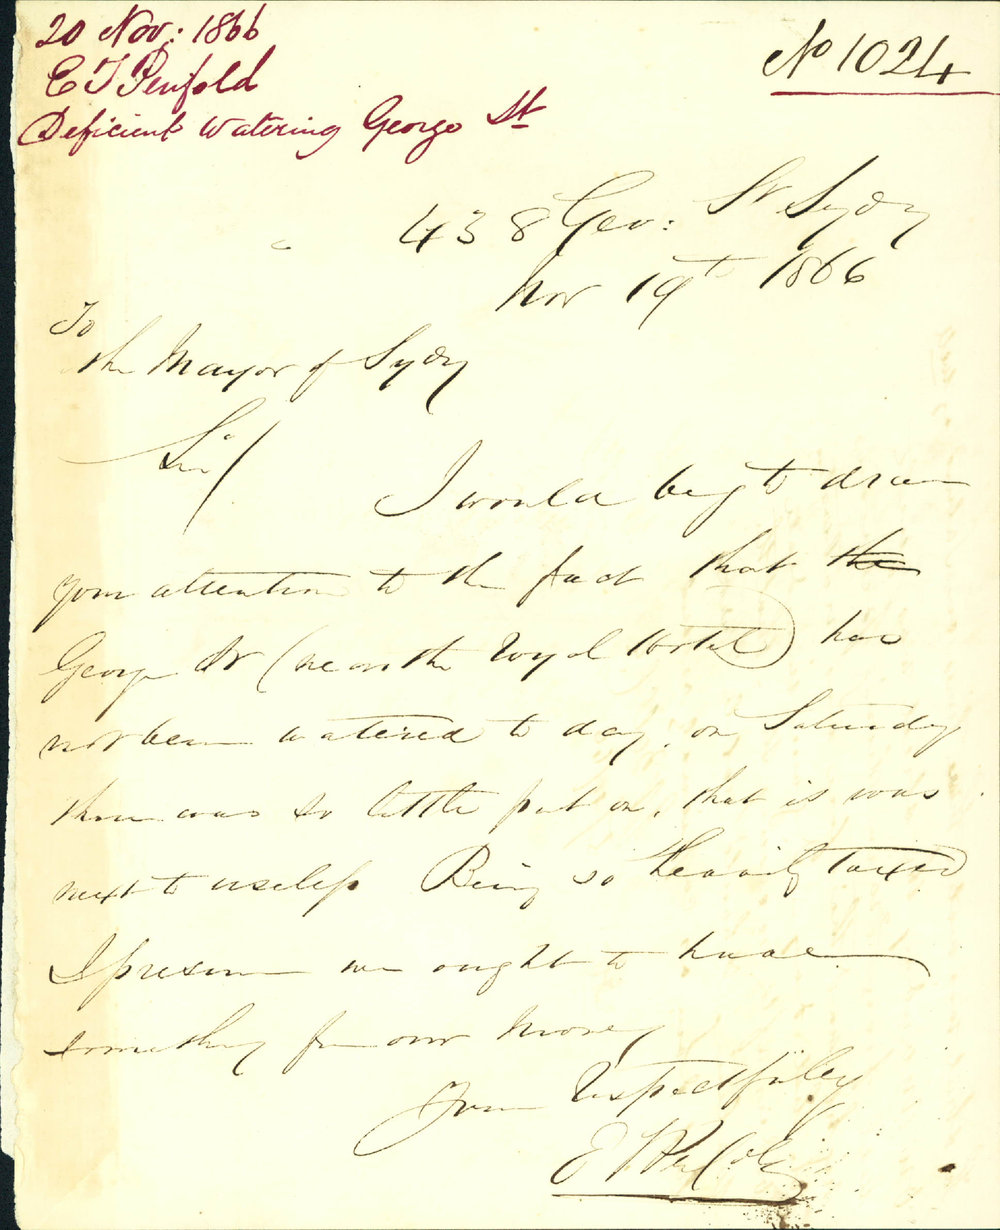 20 Nov: 1866
E T Penfold
Deficient Watering George St
No 1024
438 Geo: St Sydy
Nov 19th 1866
To
the Mayor of Sydy
Sir/
I would beg to draw
your attention to the fact that the
George St (near the Royal Hotel) has
not been watered to day, on Saturday
there was so little put on, that is was
next to useless Being so heavily taxed
I presume we ought to have
something for our money
Yours respectfully
E T Penfold